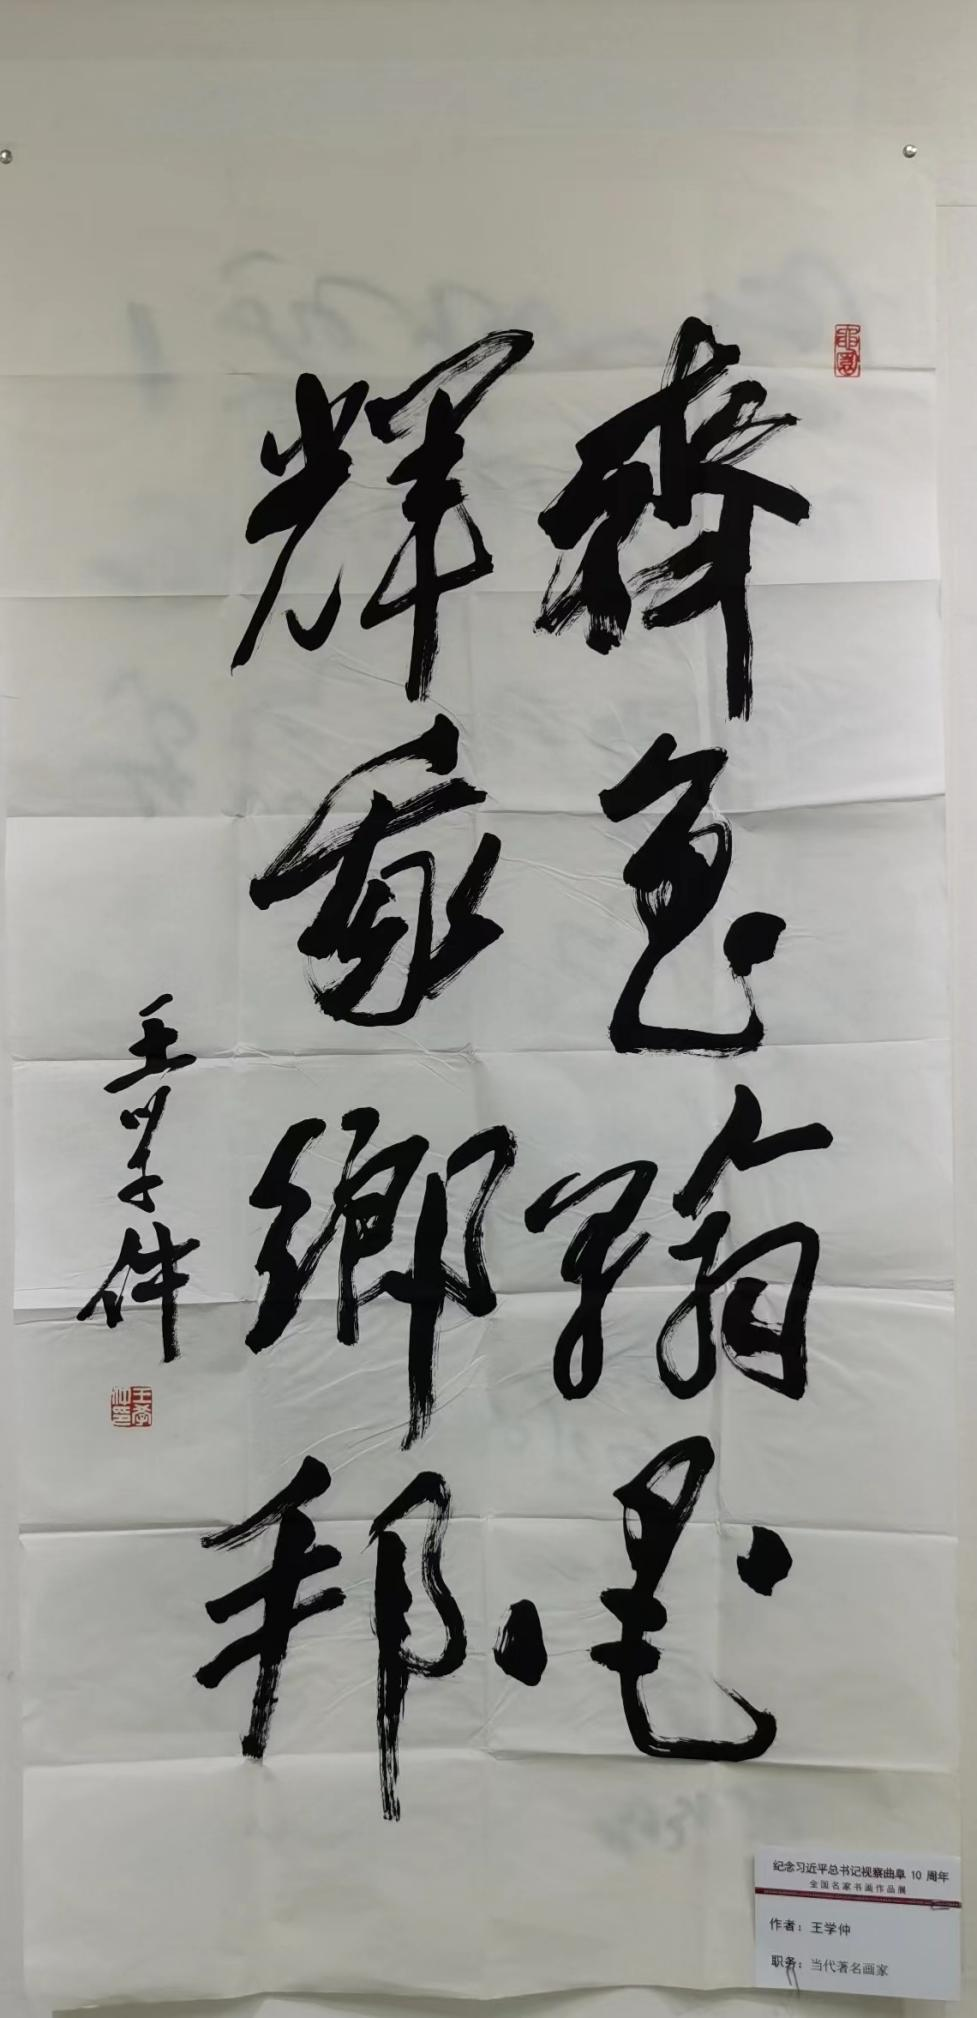 翰墨
輝家鄉邦
王学仲
王學仲印
纪念习近平总书记视察曲阜 10 周年
全国名家书画作品展
作者：王学仲
职务：当代著名画家